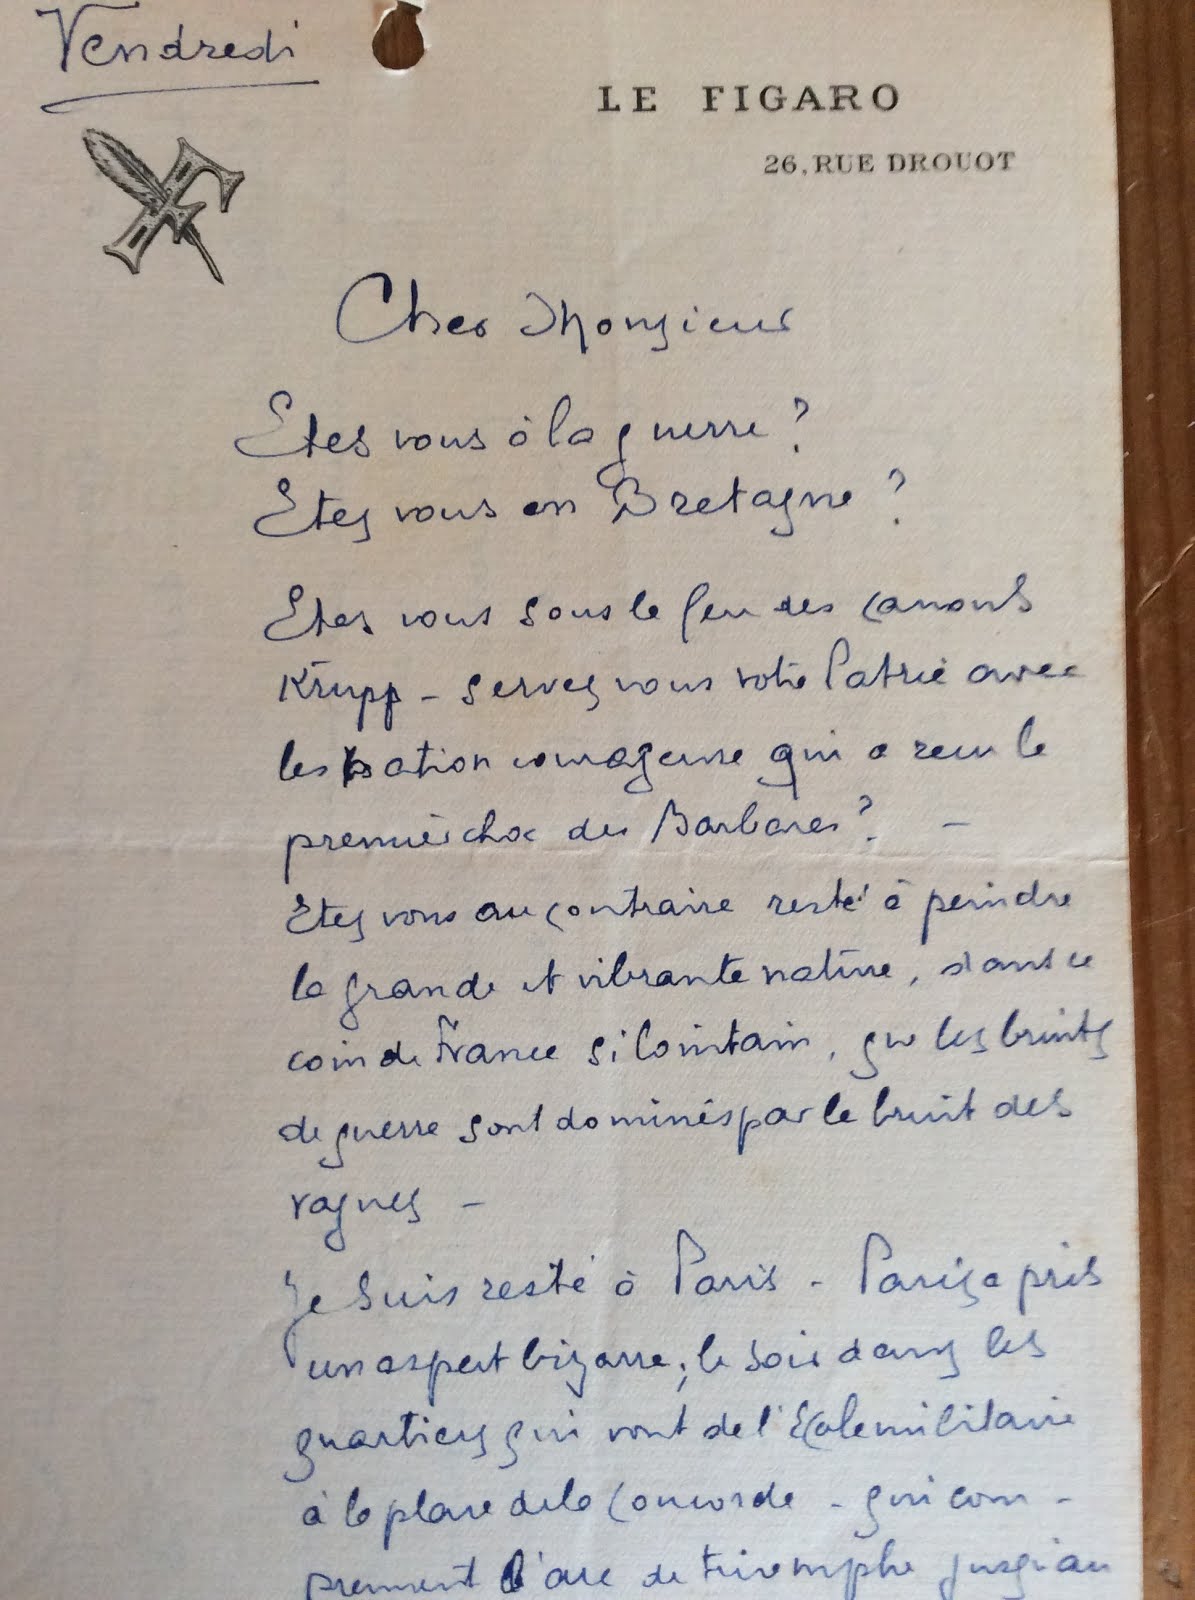 Vendredi
LE FIGARO
26, RUE DROUOT
F
Cher Monsieur
Etes vous à la guerre?
Etes vous en Bretagne?
Etes vous sous le feu des canons
Krupp - servez vous votre Patrie avec
les ation courageuse qui a recu le
premier choc des Barbares? -
Etes vous au contraire resté à peindre
la grande et vibrante nature, dans ce
coin de France si lointain, où les bruits
de guerre sont dominés par le bruit des
vagues -
Je suis resté à Paris - Paris a pris
un aspect bizarre; le soir dans les
quartiers qui vont de l'Ecole militaire
à la place de la Concorde - qui com-
prennent l'arc de triomphe jusqu'au